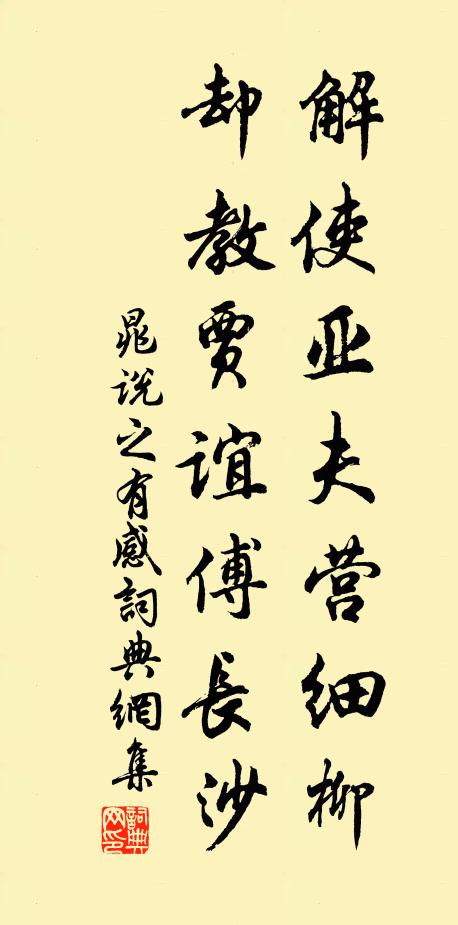 解使亚夫营细柳
却教贾谊傅長沙
晁说之有感詞典網集
詞典网印